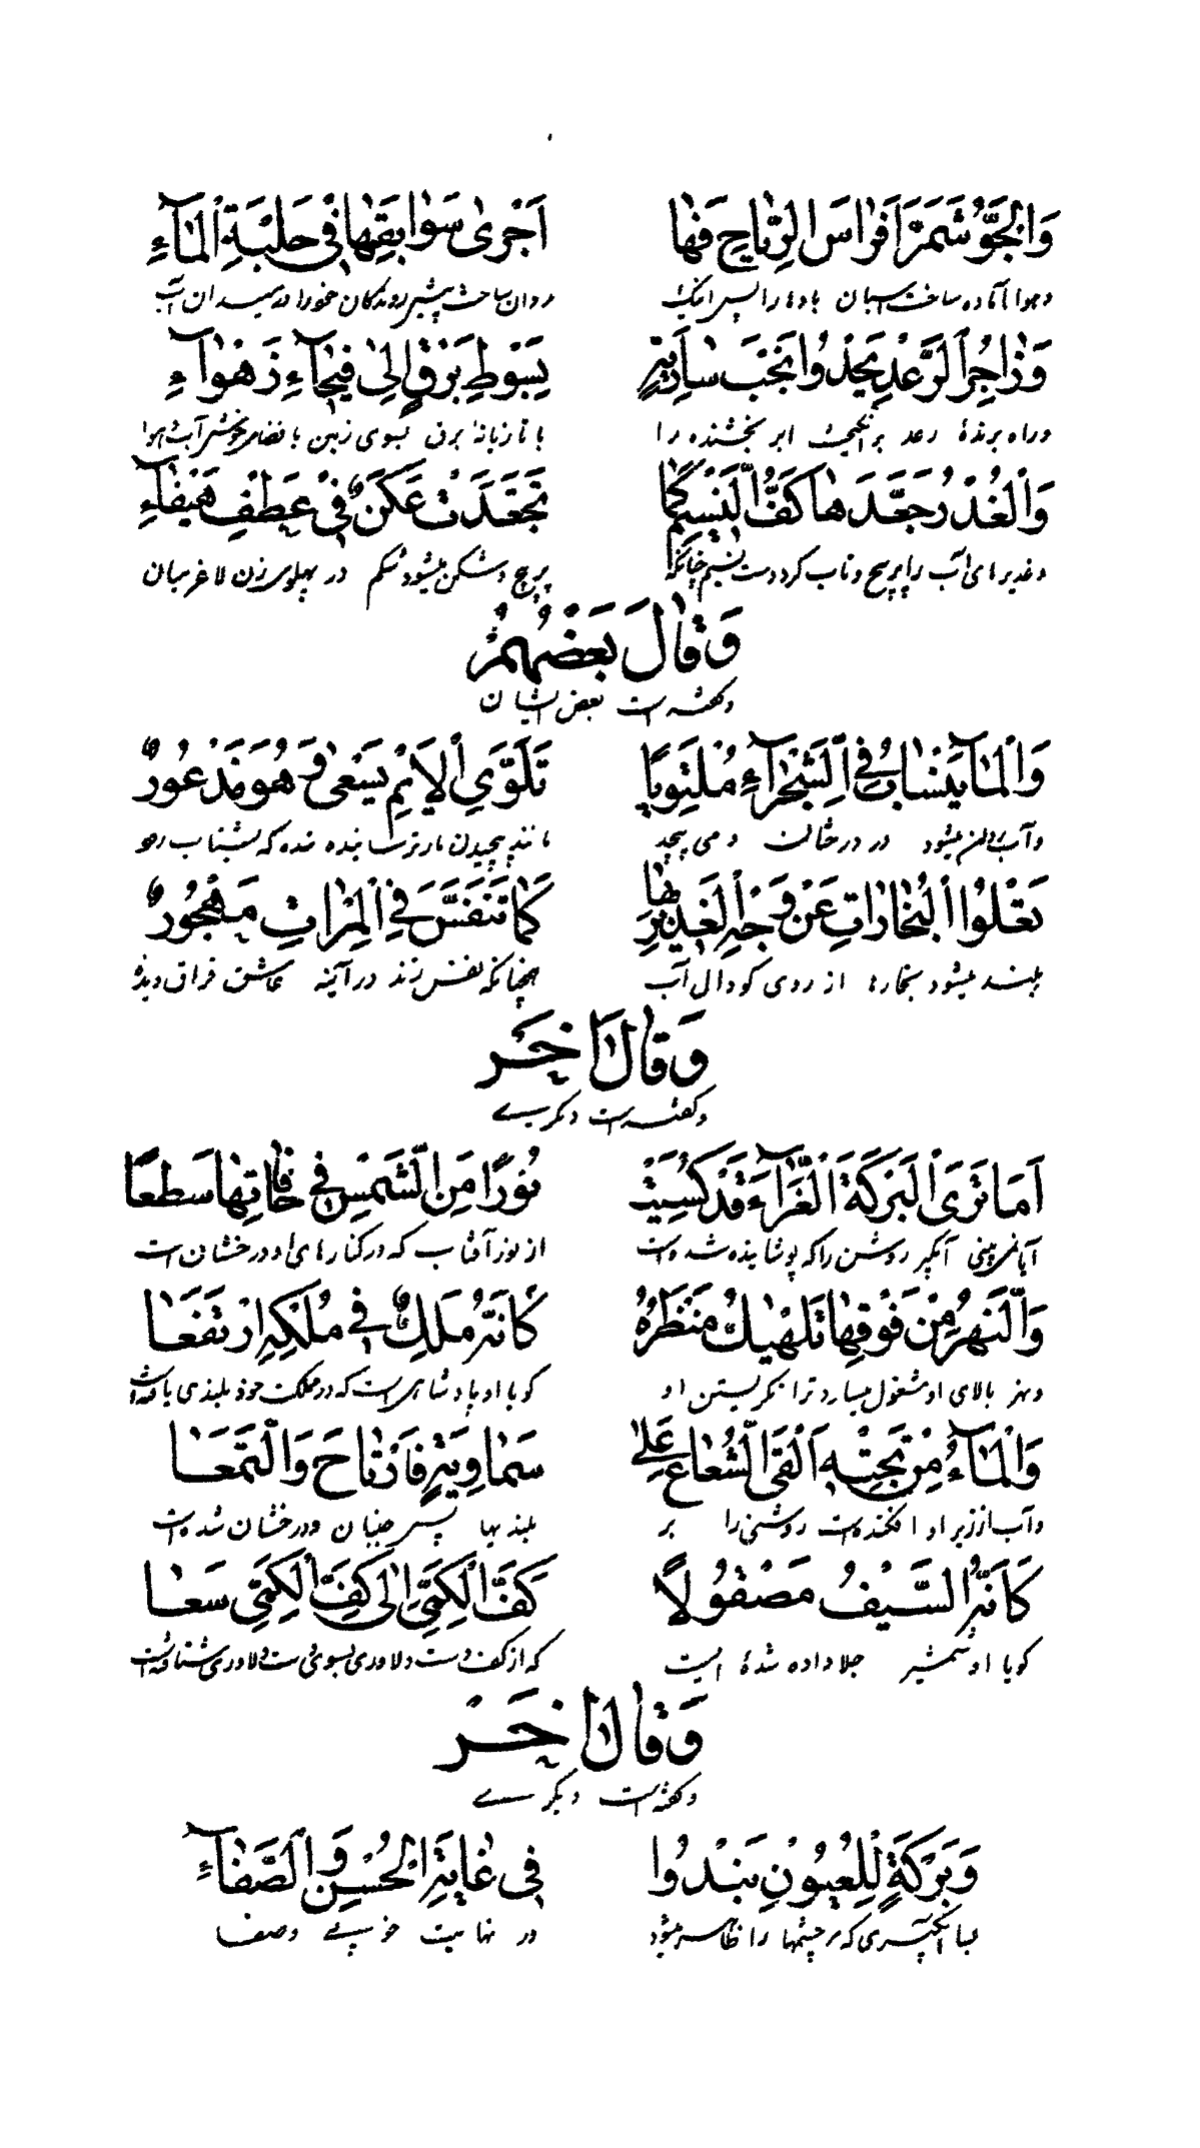 وَالْجَوُّ شَمَّرَ أَفْرَاسَ الرِّيَاحِ فَهَا اَجْرىٰ سَوَابِقِهَا فِي حَلْبَةِ الْمَآءِ
وهوا آماده ساخت اسبان بادها را پس اینک روان ساخت پیشروندگان خود را در میدان آب
وَزَاجِرُ الرَّعْدِ يَحْدُوا بُخْبَ سَارِيَةٍ بِسَوْطِ بَرْقٍ اِلىٰ فَيْحَآءِ زَهْوَآءِ
وراه برندهٔ رعد برانگیخت ابر بخشنده را با تازیانهٔ برق بسوی زمین با فضای
وَالْغُدْرُ جَعَّدَهَا كَفُّ النَّسِيمِ كَمَا تَجَعَّدَتْ عُكَنٌ فِي عَطْفِ هَيْفَآءِ
وغدیرهای آب را پرپیچ وتاب کرد دست نسیم چنانکه پرپیچ وشکن میشود شکم در پهلوی زن لاغر میان
وَقَالَ بَعْضُهُمْ
وگفته است بعض ایشان
وَالْمَآءُ يَنْسَابُ فِي الشَّجْرَآءِ مُلْتَوِيًا تَلَوِّيَ الْاَيْمِ يَسْعىٰ وَهُوَ مَذْعُورٌ
وآب میشود در درختان ومی پیچد مانند پیچیدن مار ترسانیده شده که بشتاب رود
تَعْلُوا الْبُخَارَاتِ عَنْ وَجْهِ الْغَدِيْرِ بِهَا كَمَا تَنَفَّسَ فِي الْمِرْاتِ مَهْجُورٌ
بلند میشود بخارها از روی کودال آب همچنانکه نفس زند در آینه عاشق فراق دیده
وَقَالَ اٰخَرُ
وگفته است دیگرے
اَمَا تَرَى الْبَرَكَةَ الْغَرَّآءَ قَدْ كُسِيَتْ نُوْرًا مِنَ الشَّمْسِ فِي حَافَاتِهَا سَطَعًا
آیا نمی بینی آبگیر روشن را که پوشانیده شده است از نور آفتاب که در کنارهای او درخشان است
وَالنَّهْرُ مِنْ فَوْقِهَا تَلْهِيكَ مَنْظَرُهُ كَاَنَّهُ مَلِكٌ فِي مُلْكِهِ ارْتَفَعَا
ونهر بالای او مشغول میسازد ترا نگریستن او گویا او پادشاهی است که در مملکت خود بلندی یافته است
وَالْمَآءُ مِنْ تَحْتِهِ اَلْقَى الشُّعَاعَ عَلىٰ سَمَاوِيَةٍ فَارْتَاحَ وَالْتَمَعَا
وآب از زیر او افکنده است روشنی را بر بلندیها پس جنبان ودرخشان شده است
كَاَنَّهُ السَّيْفُ مَصْقُولًا كَفُّ الْكَمِيِّ اِلىٰ كَفِّ الْكَمِيِّ سَعَا
گویا او شمشیر جلا داده شدهٔ ایست که از کف دست دلاوری بسوی دست دلاوری شتافته است
وَقَالَ اٰخَرُ
وگفته است دیگرے
وَبَرْكَةٍ لِلْعُيُونِ تَبْدُوا فِي غَايَةِ الْحُسْنِ وَالصَّفَآءِ
بسا آبگیری که بر چشمها را ظاهر میشود در نهایت خوبے وصفا